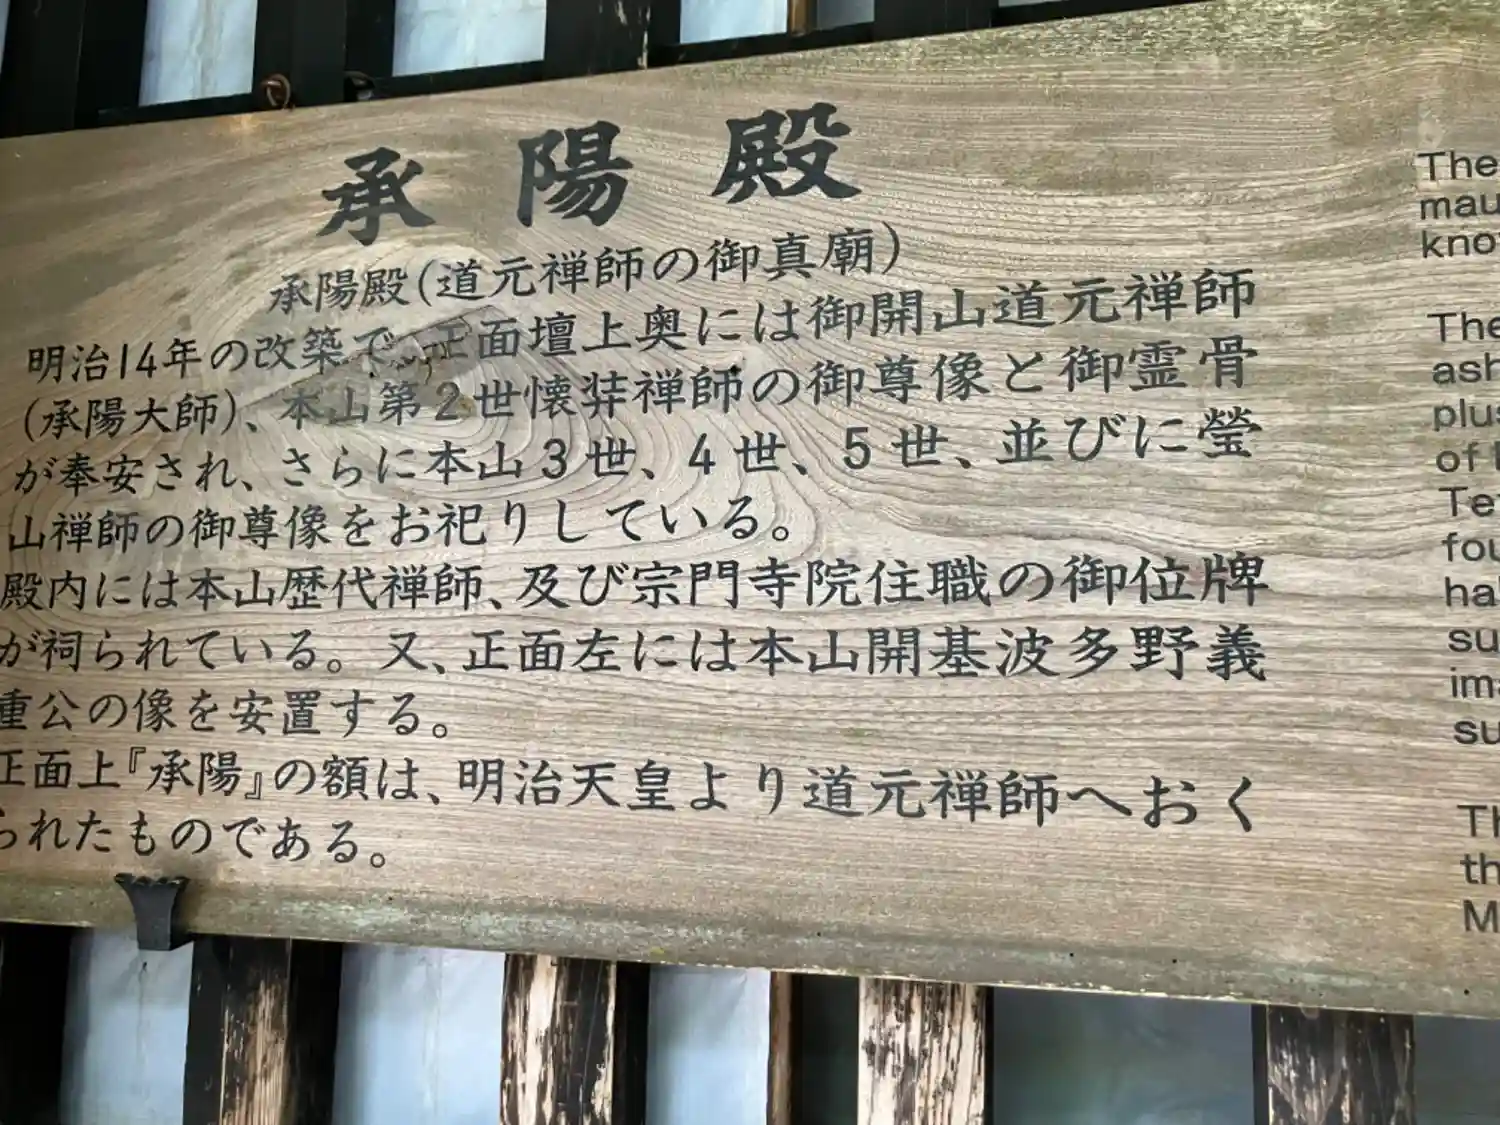 承陽殿
承陽殿(道元禅師の御真廟)
明治14年の改築で、正面壇上奥には御開山道元禅師
(承陽大師)、本山第2世懐弉禅師の御尊像と御霊骨
が奉安され、さらに本山3世、4世、5世、並びに瑩
山禅師の御尊像をお祀りしている。
殿内には本山歴代禅師、及び宗門寺院住職の御位牌
が祠られている。又、正面左には本山開基波多野義
重公の像を安置する。
正面上『承陽』の額は、明治天皇より道元禅師へおく
られたものである。
The
mau
kno
The
ash
plus
of
Te
fou
ha
su
im
su
Th
th
M